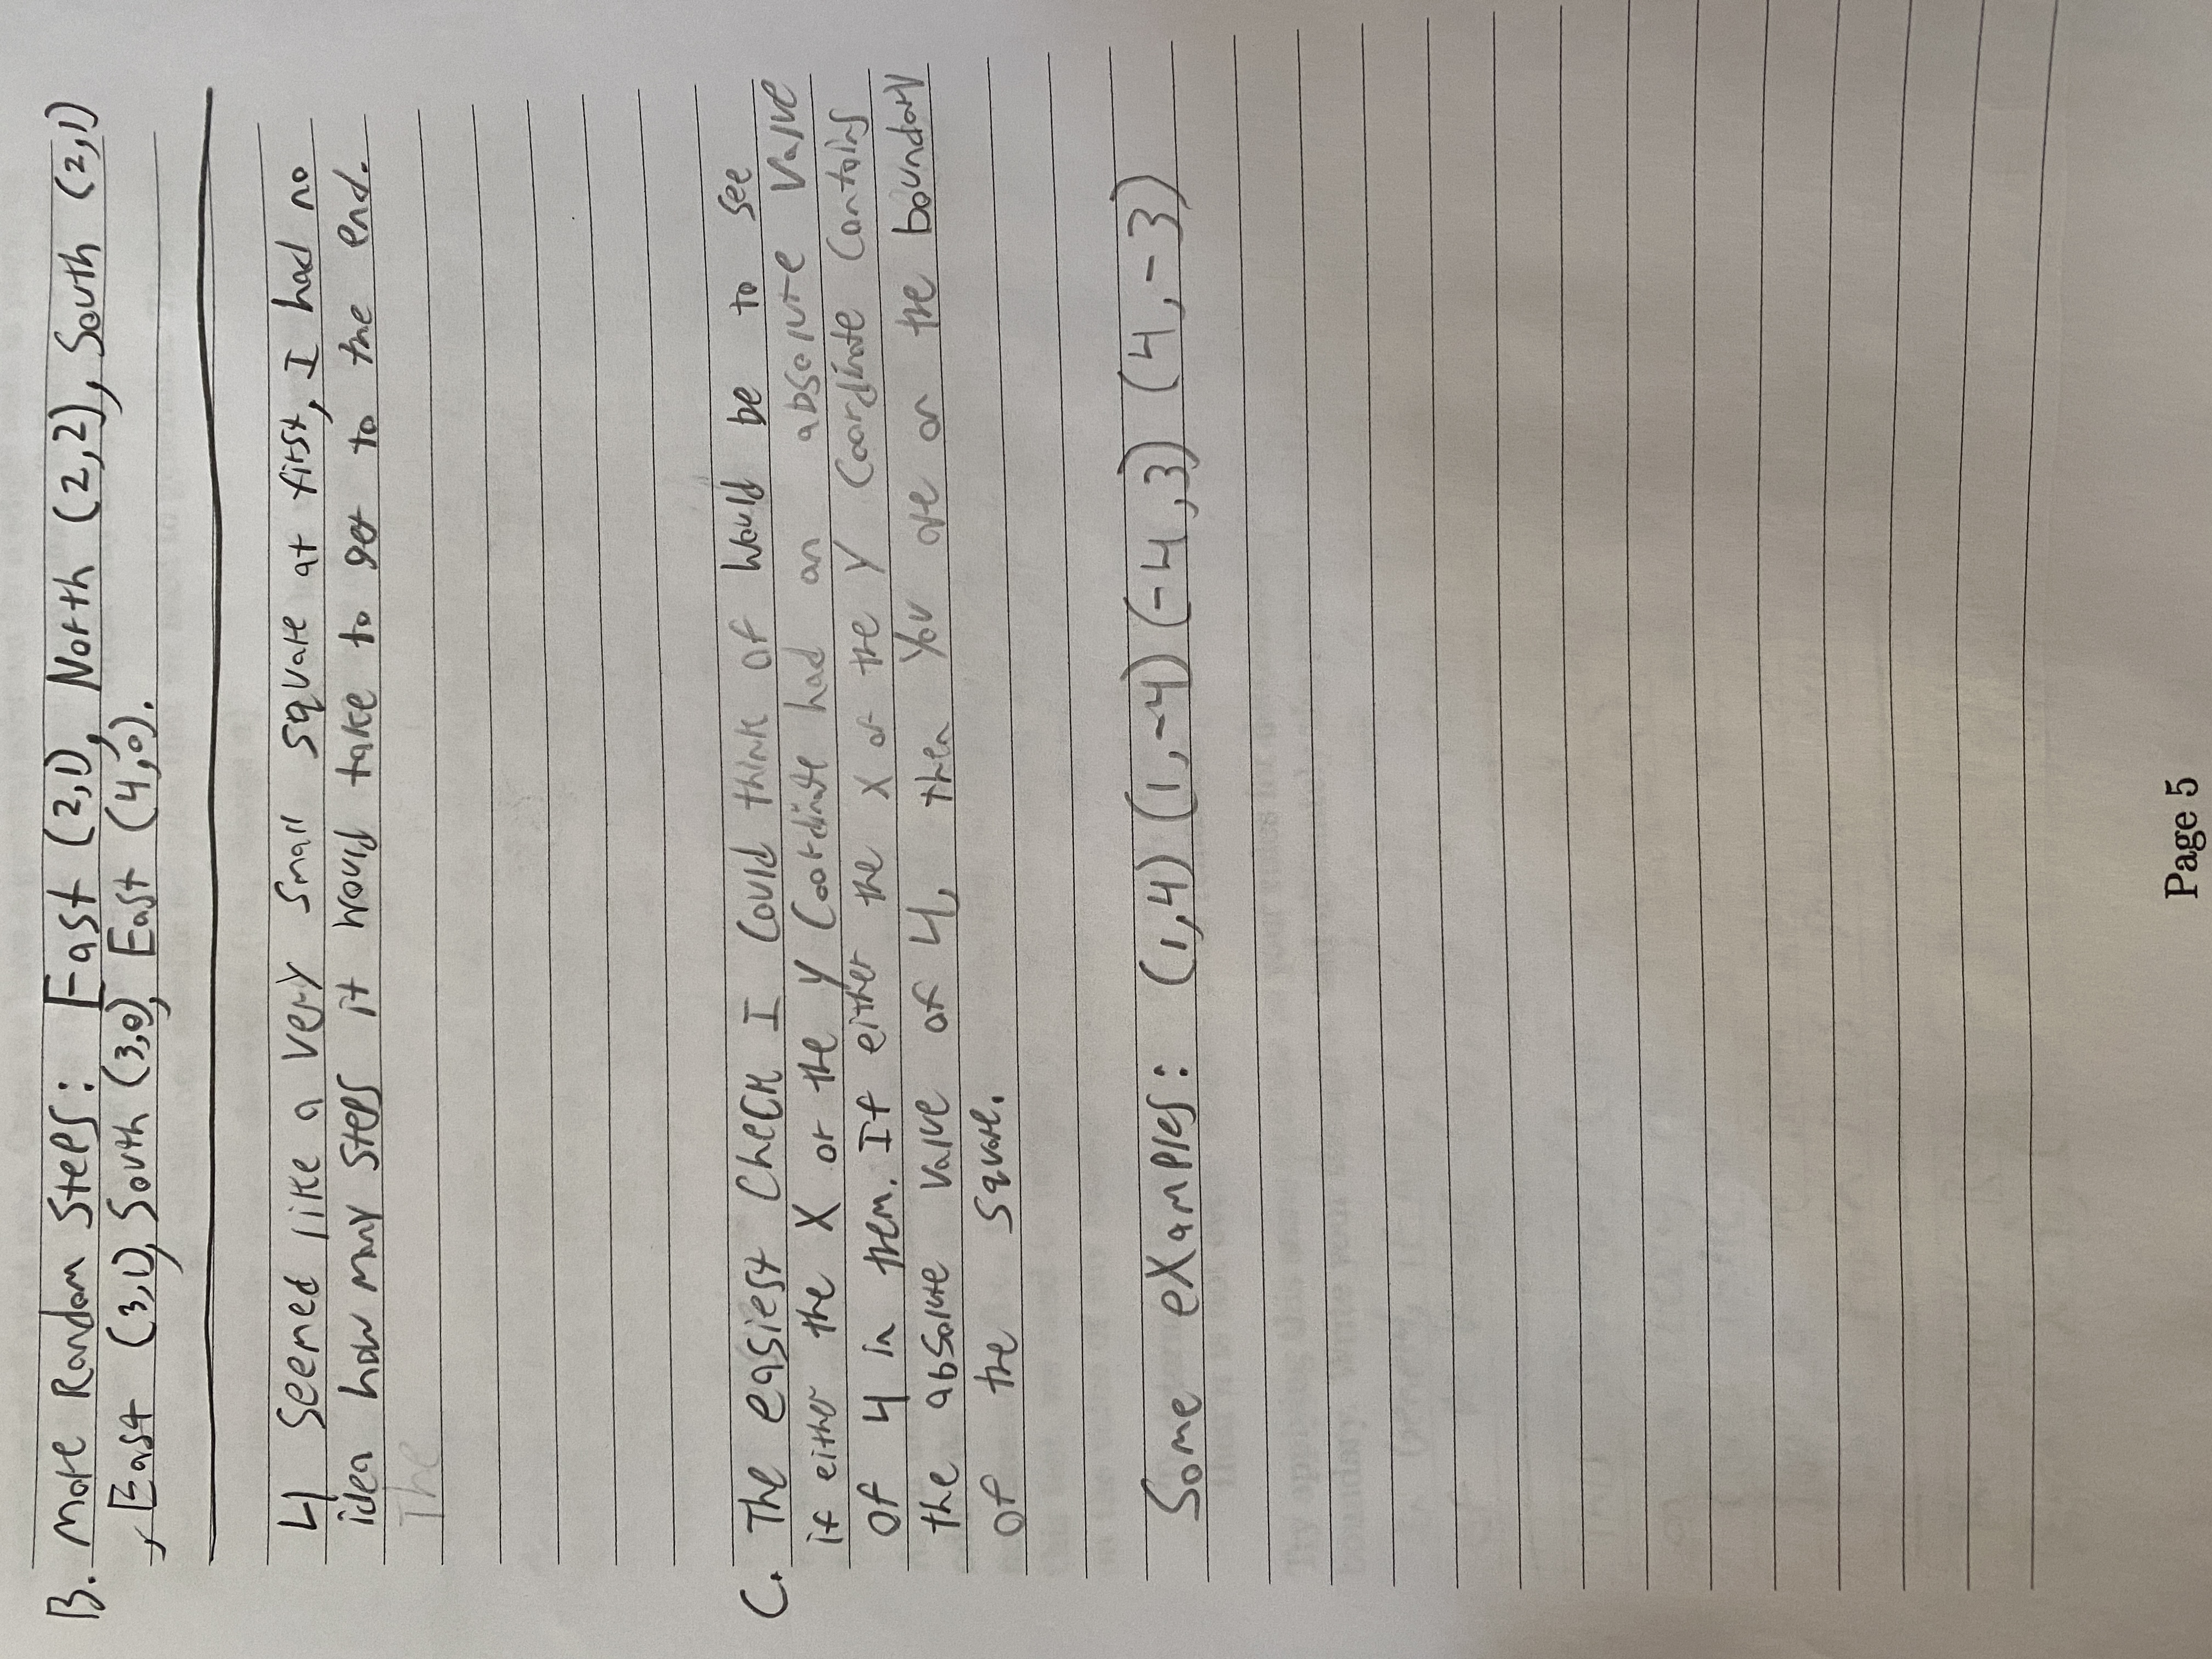 B. More Random Steps: East (2,1), North (2,2), South (2,1)
, East (3,1), South (3,0), East (4,0).
4 seemed like a very small square at first, I had no
idea how many steps it would take to get to the end.
The
C. The easiest check I could think of would be to see
if either the X or the Y coordinate had an absolute value
of 4 in them. If either the X or the Y coordinate contains
the absolute value of 4, then you are on the boundary
of the square.
Some examples: (1,4) (1,-4) (-4,3) (4,-3)
Page 5